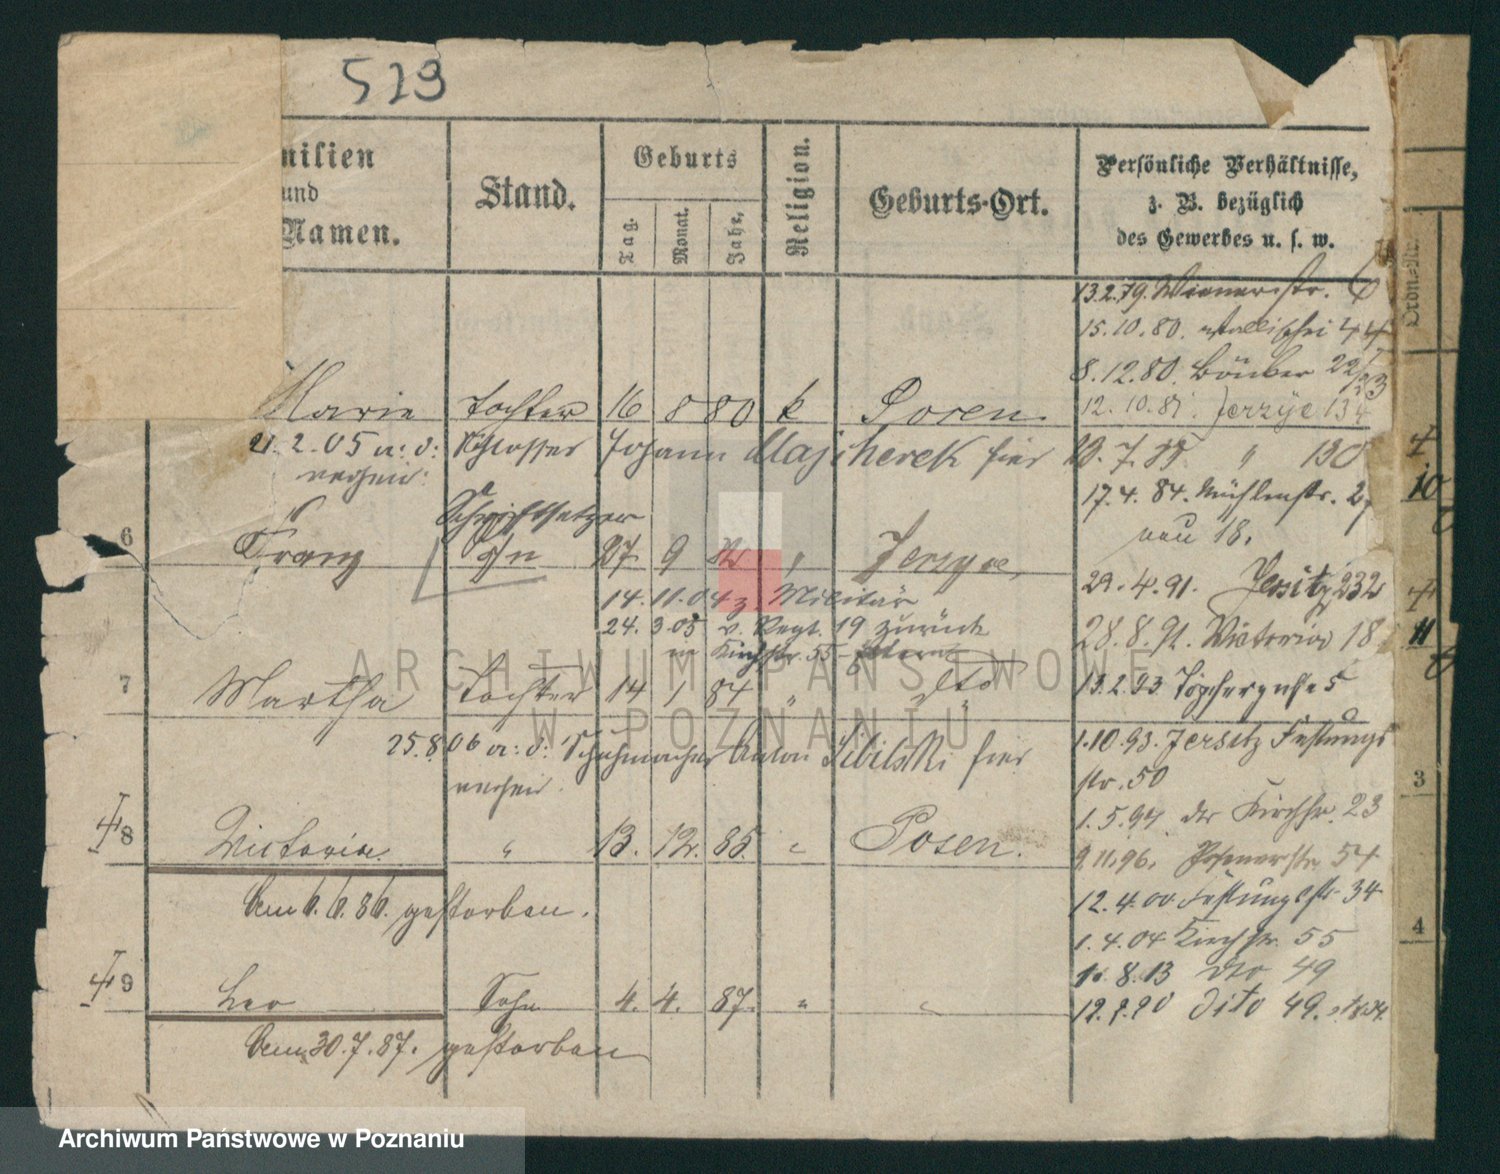 529
milien
und
Namen.
Stand.
Geburts
Tag.
Monat.
Jahr.
Religion.
Geburts-Ort.
Persönliche Verhältnisse,
z. B. bezüglich
des Gewerbes u. s. w.
Ordn.-Nr.
13.2.79. Wienerstr. 6
15.10.80. Wallischei 44
8.12.80. 22/23
Marie Tochter 16 8 80 k Posen.
12.10.81. Jerzyce 134
21.2.05 a: d: Schlosser Johann Majcherek hier
verheir:
" 130
17.4.84. Mühlenstr. 2,
neu 18.
Schriftsetzer
6 Franz Sohn 27 9 82 " Jerzyce,
14.11.04 z. Militär
24.3.05 v. Regt. 19 zurück
Kirchstr. 55
29.4.91. Jersitz 232
28.8.91. Victoria 18
7 Martha Tochter 14 1 84 " dto
13.2.93. Töpfergasse 5
25.8.06 a: d: Schuhmacher Anton Sibilski hier
verheir.
1.10.93. Jersitz Festungs
str. 50
1.5.94 Kirchstr. 23
8 Victoria " 13. 12. 85. " Posen.
9.11.96. Posenerstr. 54
Am 6.6.86. gestorben.
12.4.00. Festungsstr. 34
1.4.04 Kirchstr. 55
1.8.13 dto 49
9 Leo Sohn 4. 4. 87. " "
dito 49.
Am 30.7.87. gestorben
10
11
3
4
ARCHIWUM PAŃSTWOWE
W POZNANIU
Archiwum Państwowe w Poznaniu